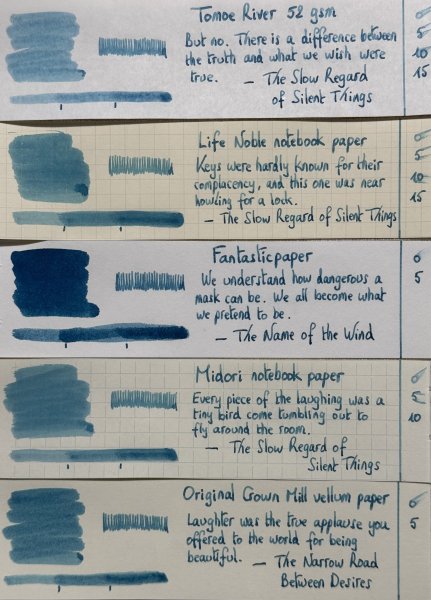 Tomoe River 52 gsm
But no. There is a difference between
the truth and what we wish were
true. — The Slow Regard
of Silent Things
0
5
10
15
Life Noble notebook paper
Keys were hardly known for their
complacency, and this one was near
howling for a lock.
— The Slow Regard of Silent Things
0
5
10
15
Fantasticpaper
We understand how dangerous a
mask can be. We all become what
we pretend to be.
— The Name of the Wind
0
5
Midori notebook paper
Every piece of the laughing was a
tiny bird come tumbling out to
fly around the room.
— The Slow Regard of
Silent Things
0
5
10
Original Crown Mill vellum paper
Laughter was the true applause you
offered to the world for being
beautiful. — The Narrow Road
Between Desires
0
5